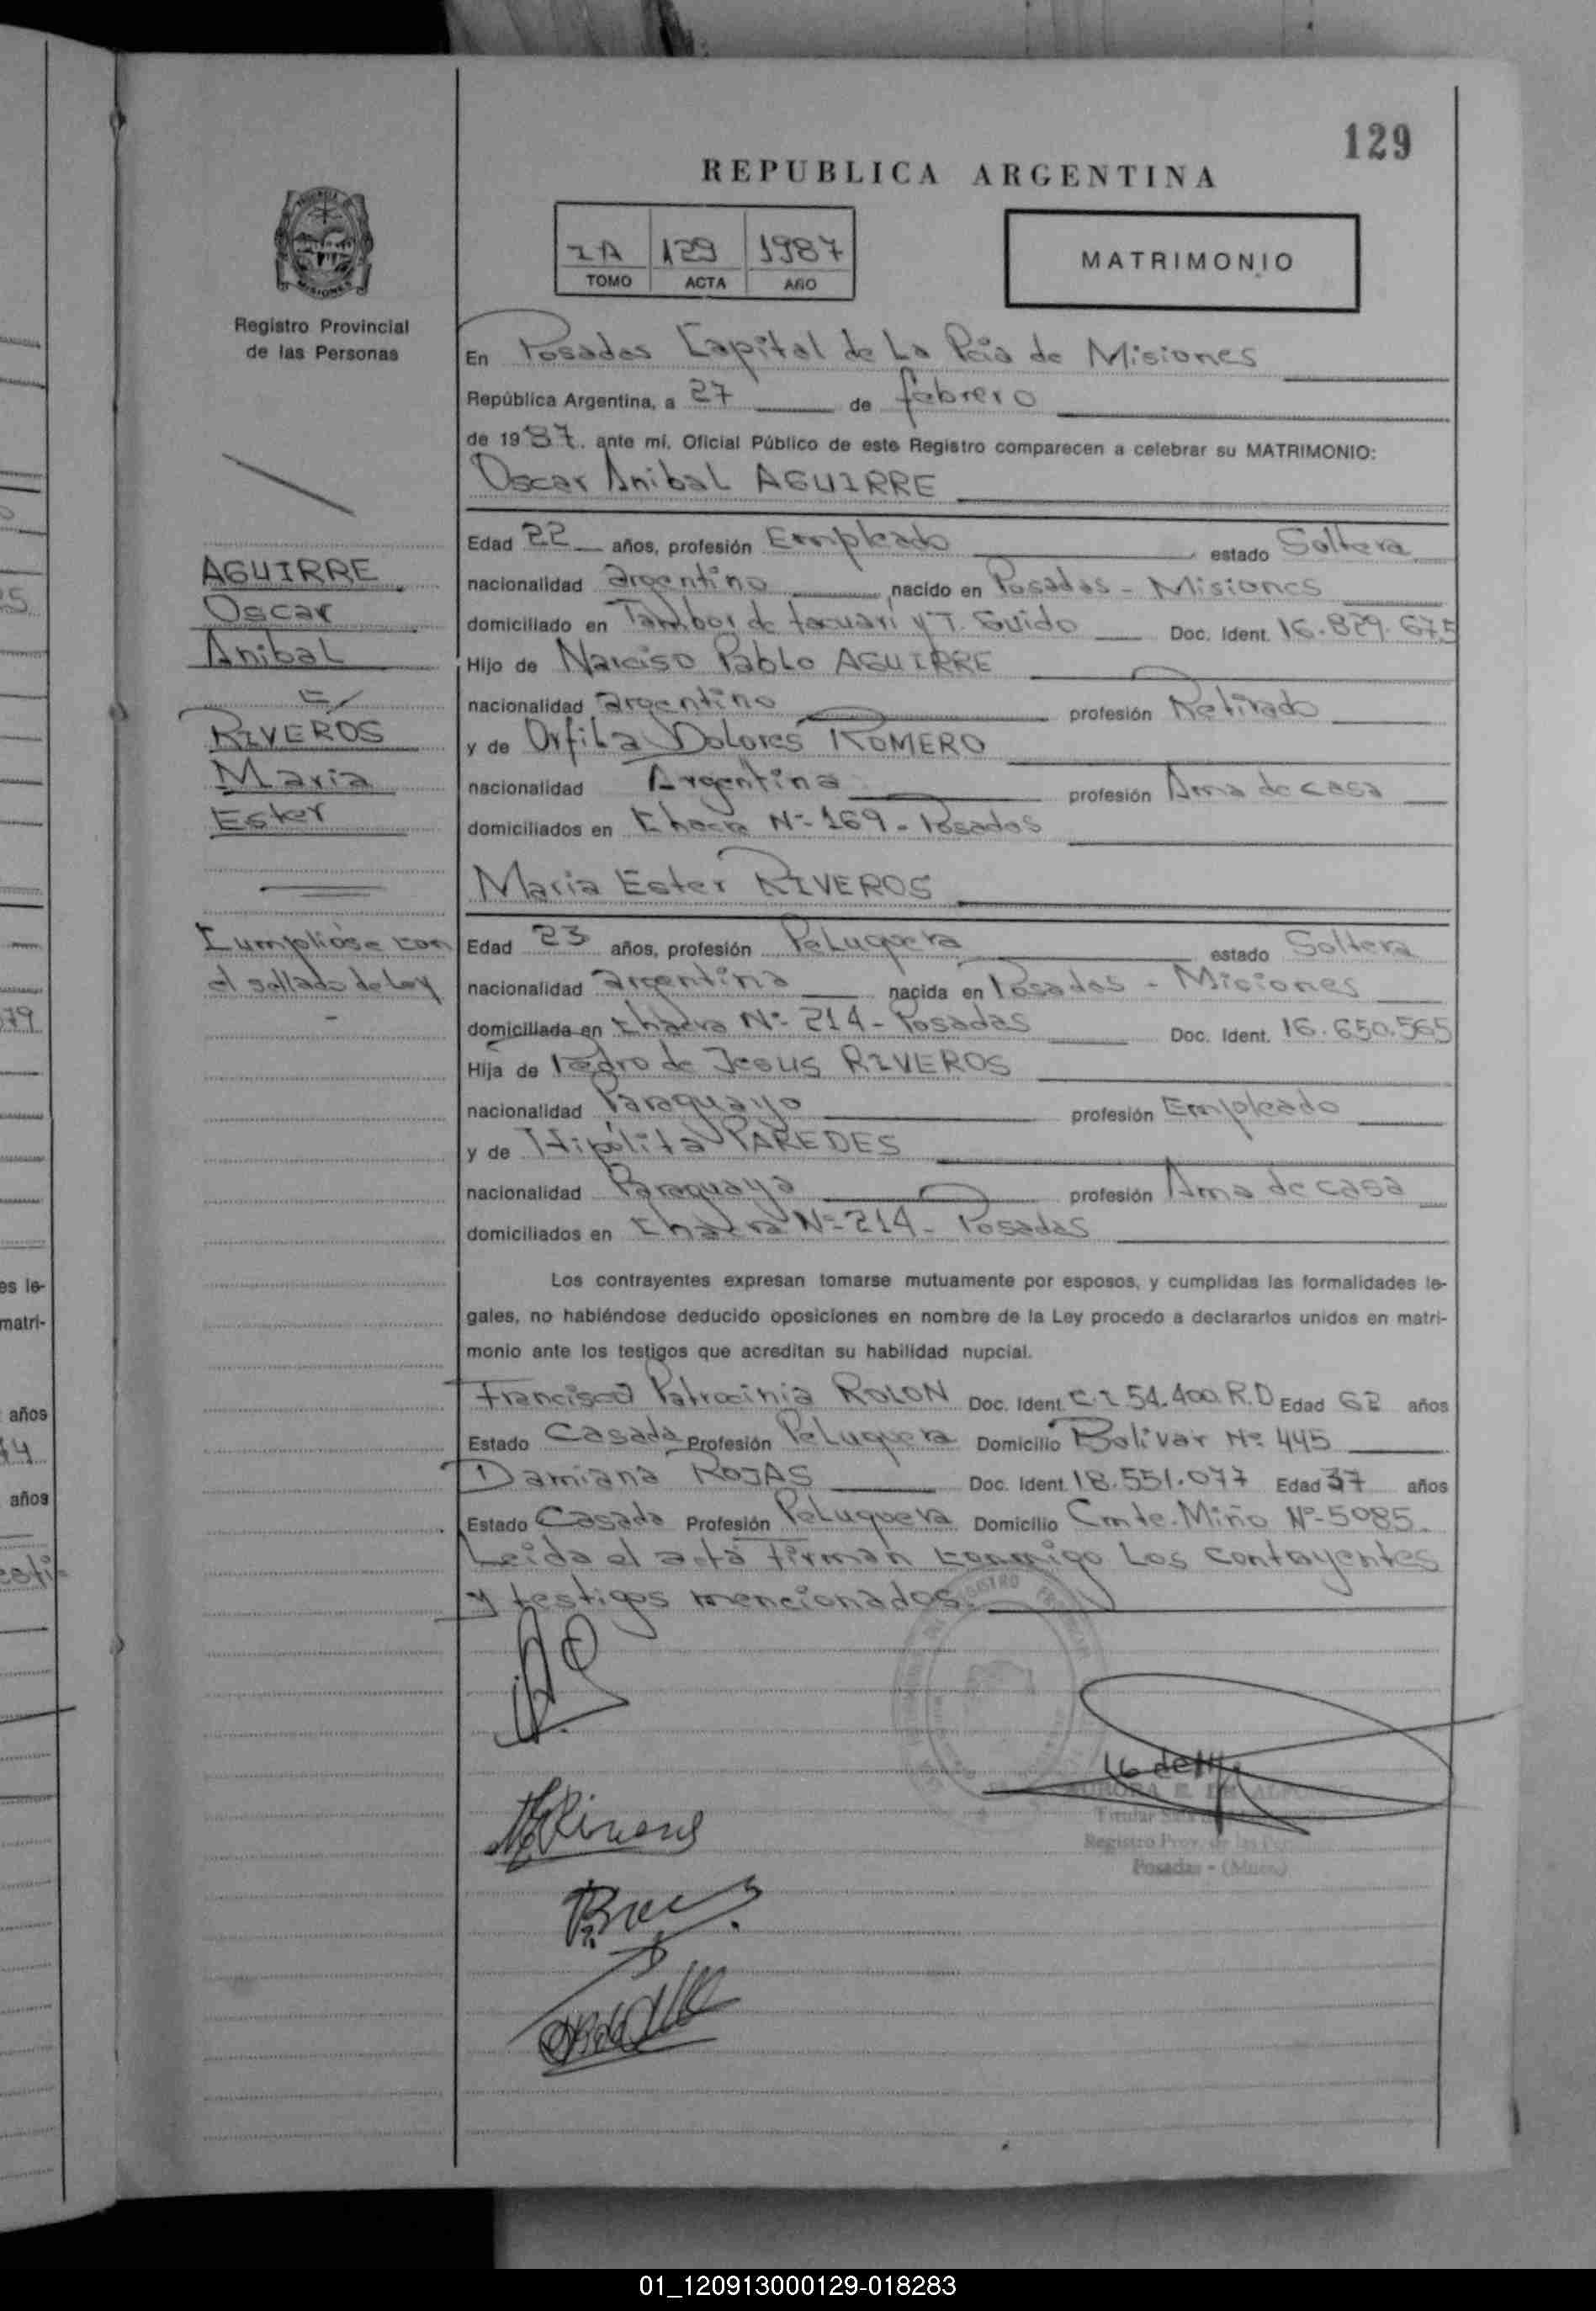 129
REPUBLICA ARGENTINA
MISIONES
Registro Provincial
de las Personas
1A 129 1987
TOMO ACTA AÑO
MATRIMONIO
En Posadas Capital de La Pcia de Misiones
República Argentina, a 27 de febrero
de 1987. ante mí, Oficial Público de este Registro comparecen a celebrar su MATRIMONIO:
Oscar Anibal AGUIRRE
Edad 22 años, profesión Empleado estado Soltera
nacionalidad argentino nacido en Posadas - Misiones
domiciliado en Tambor de tacuari y T. Guido Doc. Ident. 16.829.675
Hijo de Narciso Pablo AGUIRRE
nacionalidad argentino profesión Retirado
y de Orfila Dolores ROMERO
nacionalidad Argentina profesión Ama de casa
domiciliados en Chacra Nº 169 - Posadas
Maria Ester RIVEROS
Edad 23 años, profesión Peluquera estado Soltera
nacionalidad argentina nacida en Posadas - Misiones
domiciliada en Chacra Nº 214 - Posadas Doc. Ident. 16.650.565
Hija de Pedro de Jesus RIVEROS
nacionalidad Paraguayo profesión Empleado
y de Hipólita PAREDES
nacionalidad Paraguaya profesión Ama de casa
domiciliados en Chacra Nº 214 - Posadas
Los contrayentes expresan tomarse mutuamente por esposos, y cumplidas las formalidades le-
gales, no habiéndose deducido oposiciones en nombre de la Ley procedo a declararlos unidos en matri-
monio ante los testigos que acreditan su habilidad nupcial.
Francisca Patrocinia ROLON Doc. Ident. C.I 54.400 R.D Edad 62 años
Estado Casada Profesión Peluquera Domicilio Bolivar Nº 445
Damiana ROJAS Doc. Ident. 18.551.077 Edad 37 años
Estado Casada Profesión Peluquera Domicilio Cmte. Miño Nº 5085.
Leida el acta firman conmigo los contayentes
y testigos mencionados.
AGUIRRE
Oscar
Anibal
c/
RIVEROS
Maria
Ester
Cumplióse con
el sellado de Ley
REGISTRO
Titular
Registro Prov. de las
Posadas - (Mnes)
es le-
matri-
años
años
01_120913000129-018283